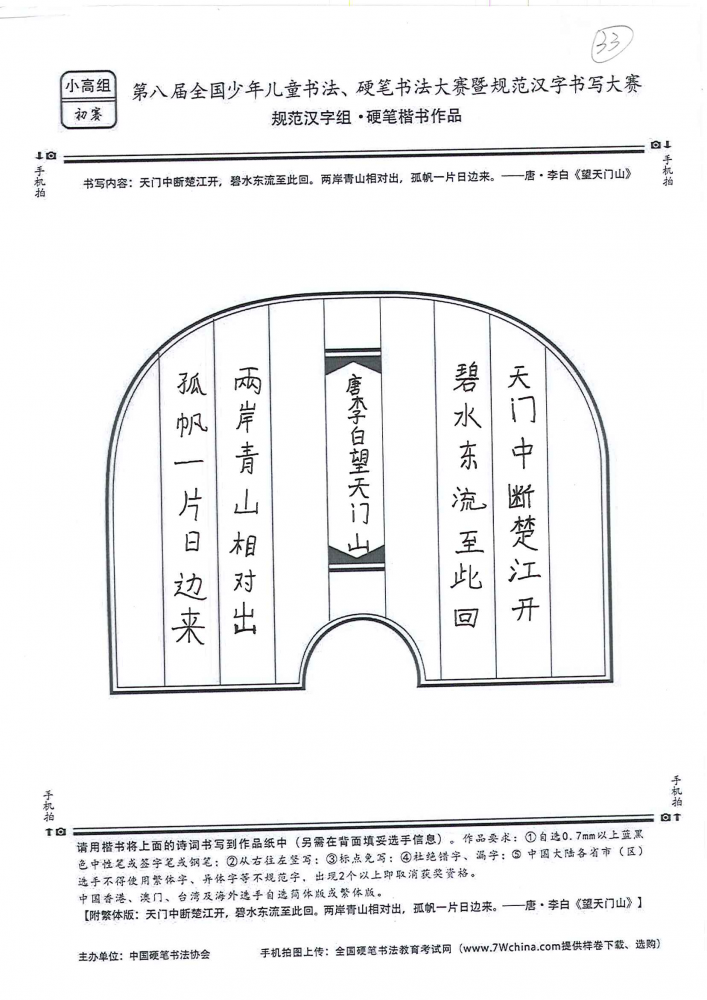 33
小高组
初赛
第八届全国少年儿童书法、硬笔书法大赛暨规范汉字书写大赛
规范汉字组·硬笔楷书作品
手机拍
手机拍
书写内容：天门中断楚江开，碧水东流至此回。两岸青山相对出，孤帆一片日边来。——唐·李白《望天门山》
天门中断楚江开
碧水东流至此回
唐李白望天门山
兩岸青山相对出
孤帆一片日边来
手机拍
手机拍
请用楷书将上面的诗词书写到作品纸中（另需在背面填妥选手信息）。作品要求：①自选0.7mm以上蓝黑
色中性笔或签字笔或钢笔；②从右往左竖写；③标点免写；④杜绝错字、漏字；⑤中国大陆各省市（区）
选手不得使用繁体字、异体字等不规范字，出现2个以上即取消获奖资格。
中国香港、澳门、台湾及海外选手自选简体版或繁体版。
【附繁体版：天门中断楚江开，碧水东流至此回。两岸青山相对出，孤帆一片日边来。——唐·李白《望天门山》】
主办单位：中国硬笔书法协会
手机拍图上传：全国硬笔书法教育考试网（www.7Wchina.com提供样卷下载、选购）